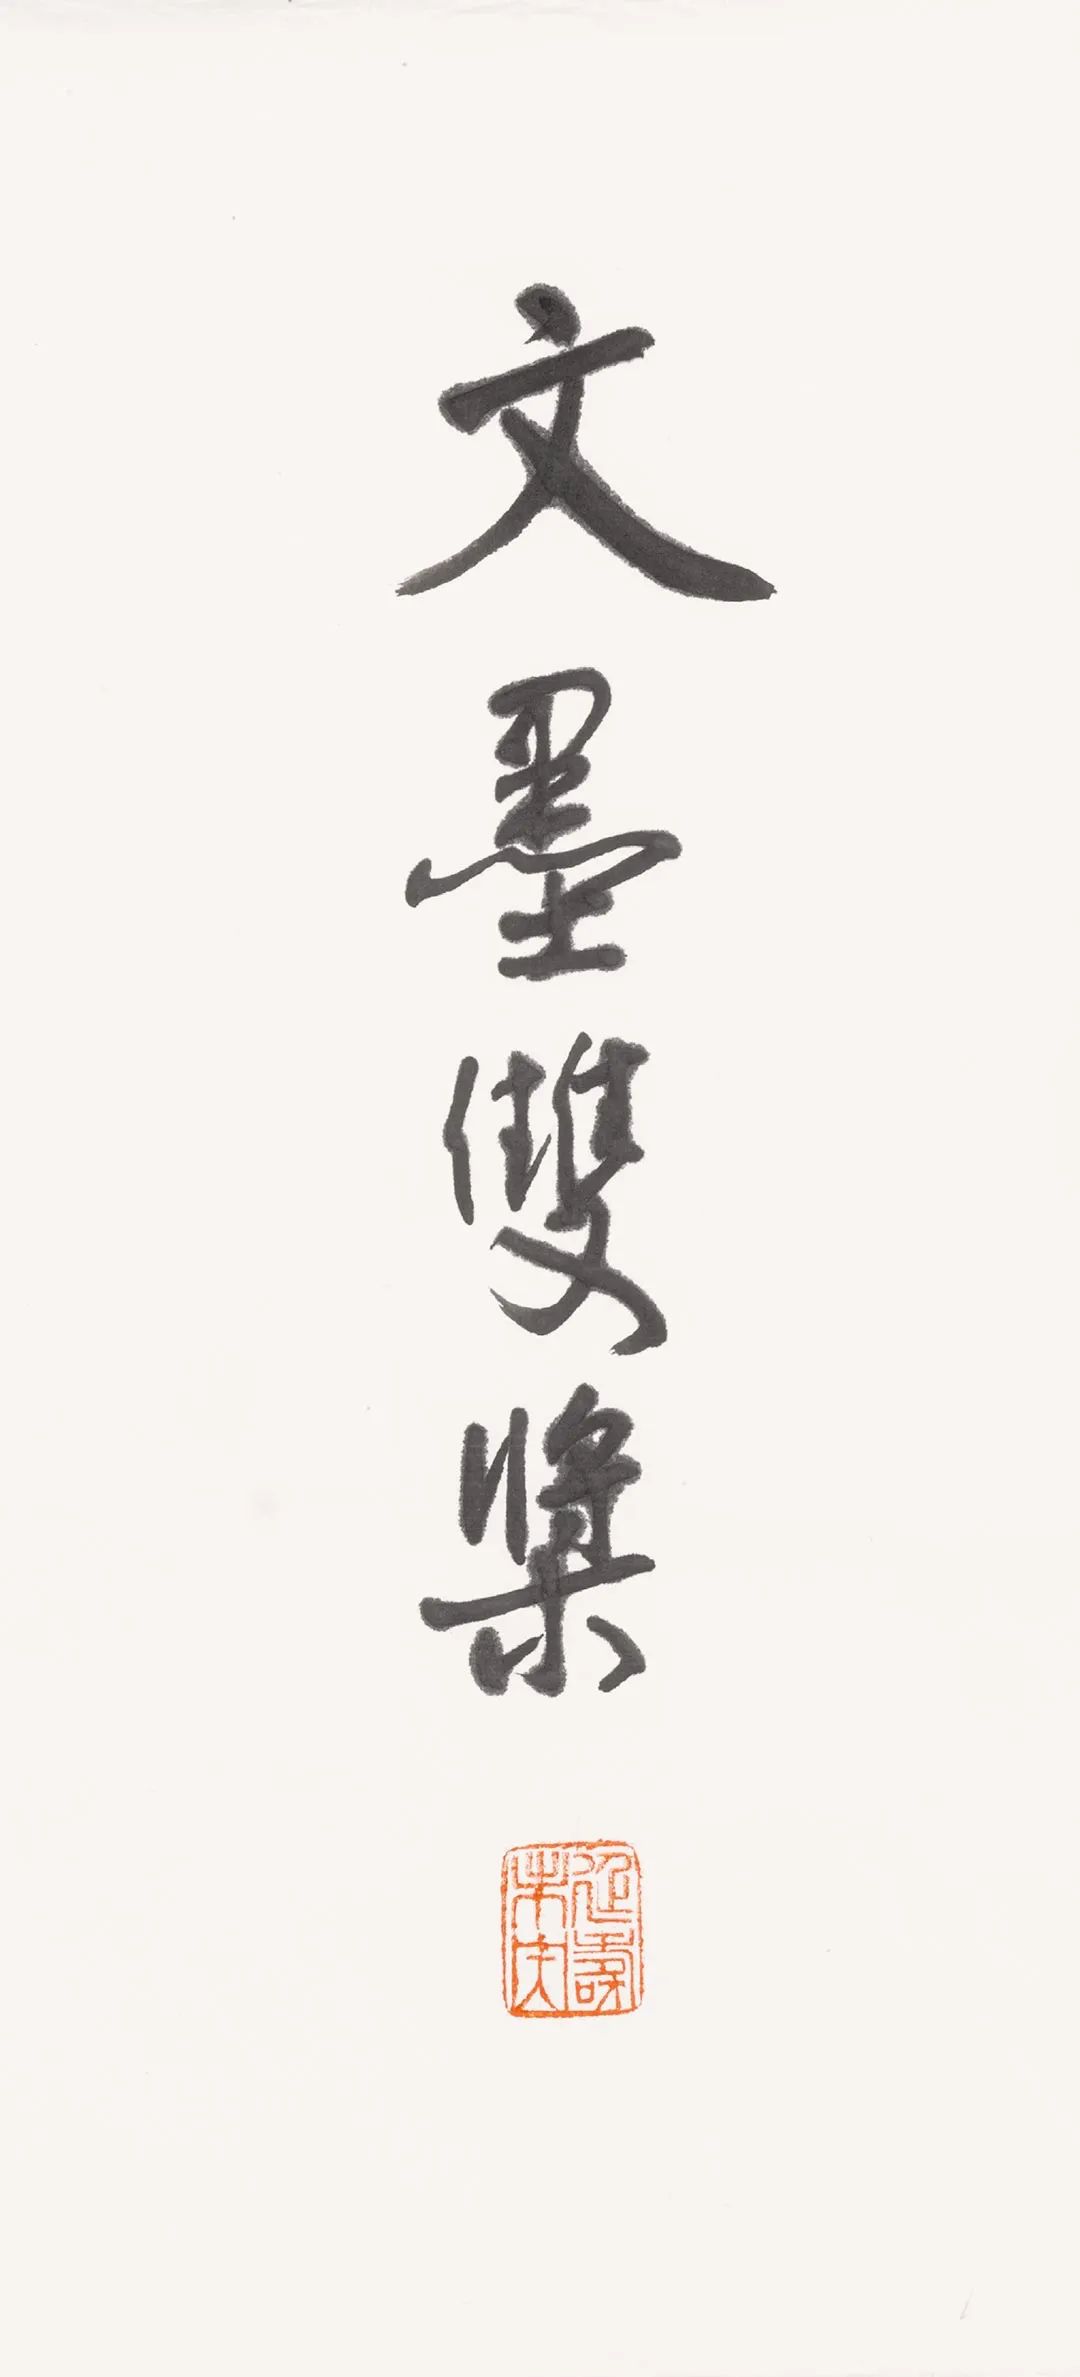 文墨雙槳